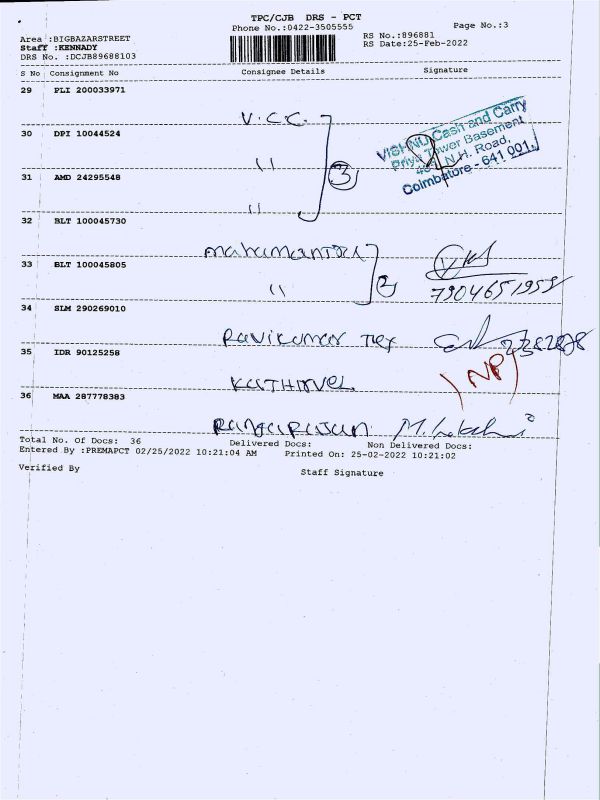 TPC/CJB DRS - PCT
Phone No.:0422-3505555
Page No.:3
Area :BIGBAZARSTREET
RS No.:896881
Staff :KENNADY
RS Date:25-Feb-2022
DRS No. :DCJB89688103
S No Consignment No Consignee Details Signature
29 PLI 200033971
V.C.C.
30 DPI 10044524
"
31 AMD 24295548
"
3
VISHNU Cash and Carry
Priya Tower Basement
N.H. Road,
Coimbatore - 641 001.
32 BLT 100045730
33 BLT 100045805
"
2
7904651959
34 SLM 290269010
Ravikumar Tex
35 IDR 90125258
KATHIRVEL
NP
36 MAA 287778383
Rangarajan
Total No. Of Docs: 36 Delivered Docs: Non Delivered Docs:
Entered By :PREMAPCT 02/25/2022 10:21:04 AM Printed On: 25-02-2022 10:21:02
Verified By Staff Signature